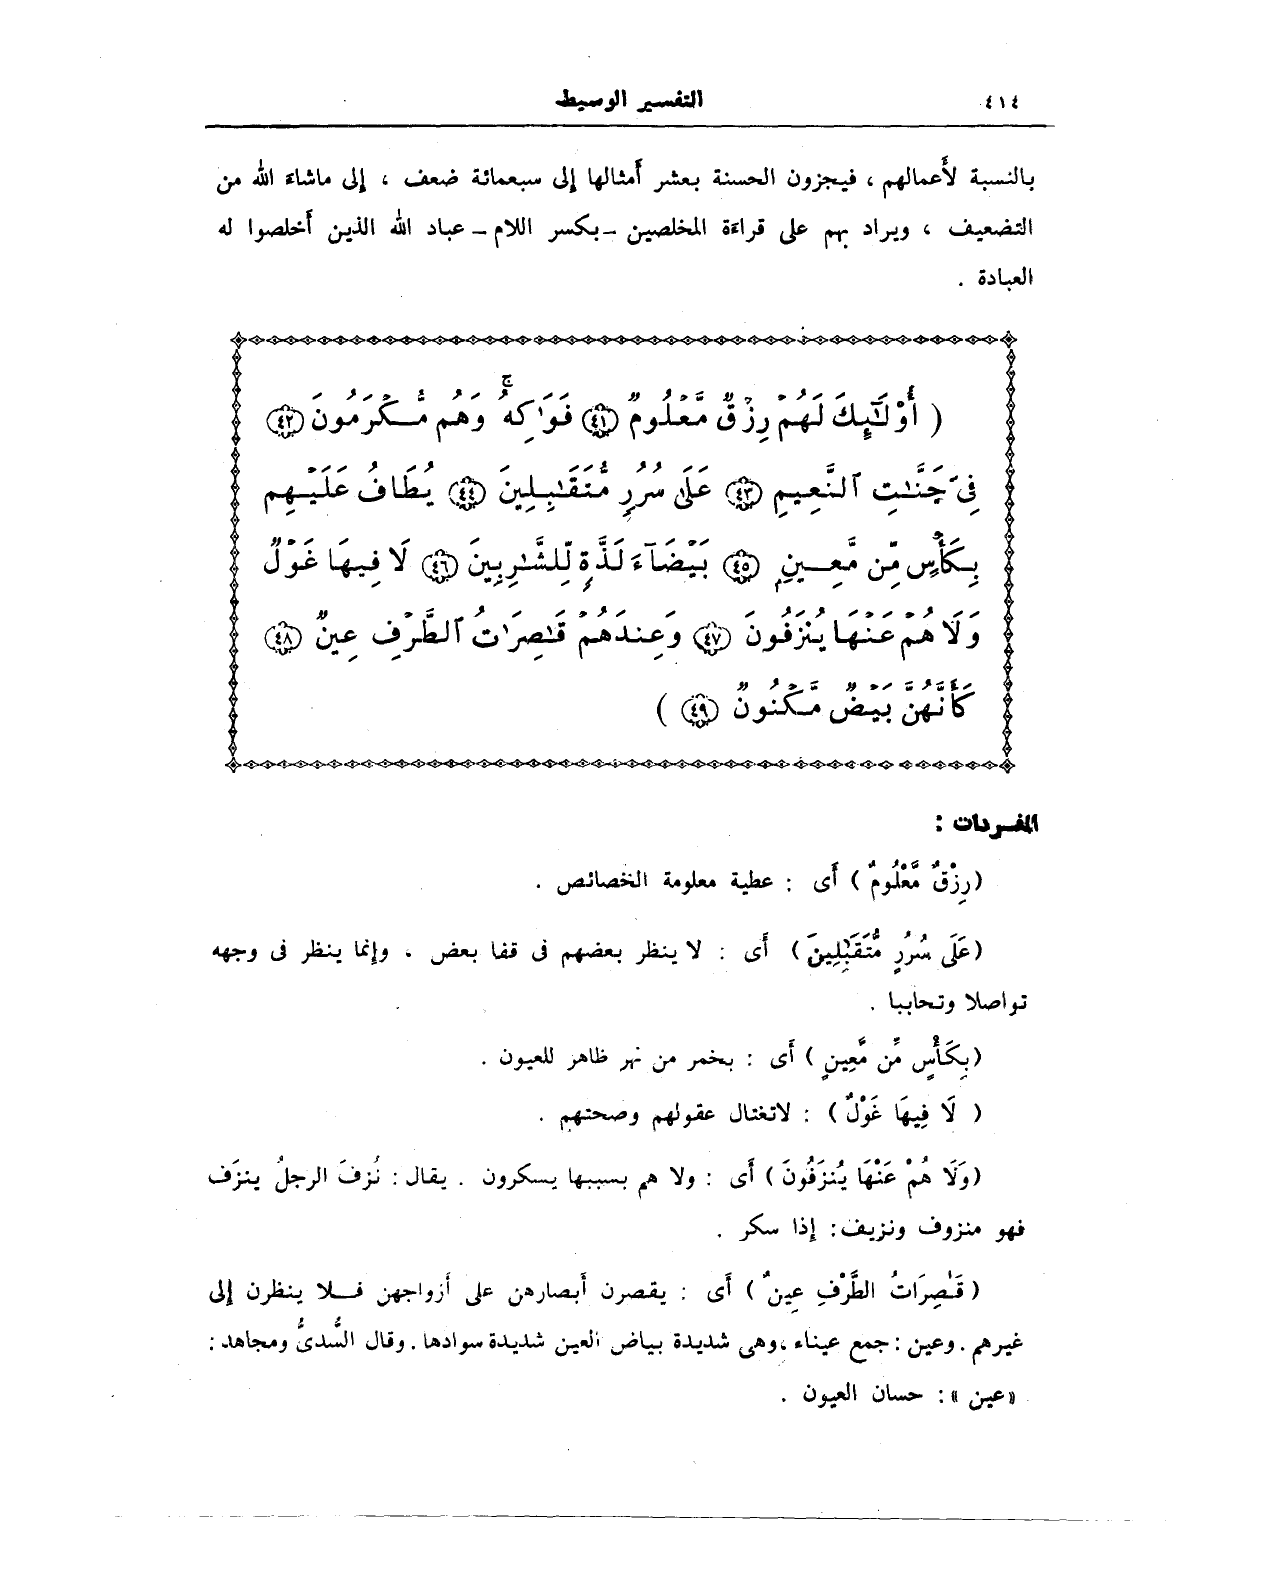 ٤١٤
التفسير الوسيط
بالنسبة لأعمالهم ، فيجزون الحسنة بعشر أمثالها إلى سبعمائة ضعف ، إلى ماشاء الله من
التضعيف ، ويراد بهم على قراءة المخلصين – بكسر اللام – عباد الله الذين أخلصوا له
العبادة .
( أُوْلَـٰٓئِكَ لَهُمْ رِزْقٌ مَّعْلُومٌ ﴿٤١﴾ فَوَٰكِهُ ۖ وَهُم مُّكْرَمُونَ ﴿٤٢﴾
فِى جَنَّـٰتِ ٱلنَّعِيمِ ﴿٤٣﴾ عَلَىٰ سُرُرٍ مُّتَقَـٰبِلِينَ ﴿٤٤﴾ يُطَافُ عَلَيْهِم
بِكَأْسٍ مِّن مَّعِينٍ ﴿٤٥﴾ بَيْضَآءَ لَذَّةٍ لِّلشَّـٰرِبِينَ ﴿٤٦﴾ لَا فِيهَا غَوْلٌ
وَلَا هُمْ عَنْهَا يُنزَفُونَ ﴿٤٧﴾ وَعِندَهُمْ قَـٰصِرَٰتُ ٱلطَّرْفِ عِينٌ ﴿٤٨﴾
كَأَنَّهُنَّ بَيْضٌ مَّكْنُونٌ ﴿٤٩﴾ )
المفردات :
(رِزْقٌ مَّعْلُومٌ ) أَى : عطية معلومة الخصائص .
(عَلَى سُرُرٍ مُّتَقَـٰبِلِينَ ) أَى : لا ينظر بعضهم فى قفا بعض ، وإنما ينظر فى وجهه
تواصلا وتحاببا .
(بِكَأْسٍ مِّن مَّعِينٍ ) أَى : بخمر من نهر ظاهر للعيون .
( لَا فِيهَا غَوْلٌ ) : لاتغتال عقولهم وصحتهم .
(وَلَا هُمْ عَنْهَا يُنزَفُونَ ) أَى : ولا هم بسببها يسكرون . يقال : نُزِفَ الرجلُ ينزَف
فهو منزوف ونزيف : إذا سكر .
( قَـٰصِرَاتُ الطَّرْفِ عِينٌ ) أَى : يقصرن أبصارهن على أزواجهن فلا ينظرن إلى
غيرهم . وعين : جمع عيناء ، وهى شديدة بياض العين شديدة سوادها . وقال السُّدىُّ ومجاهد :
«عين » : حسان العيون .